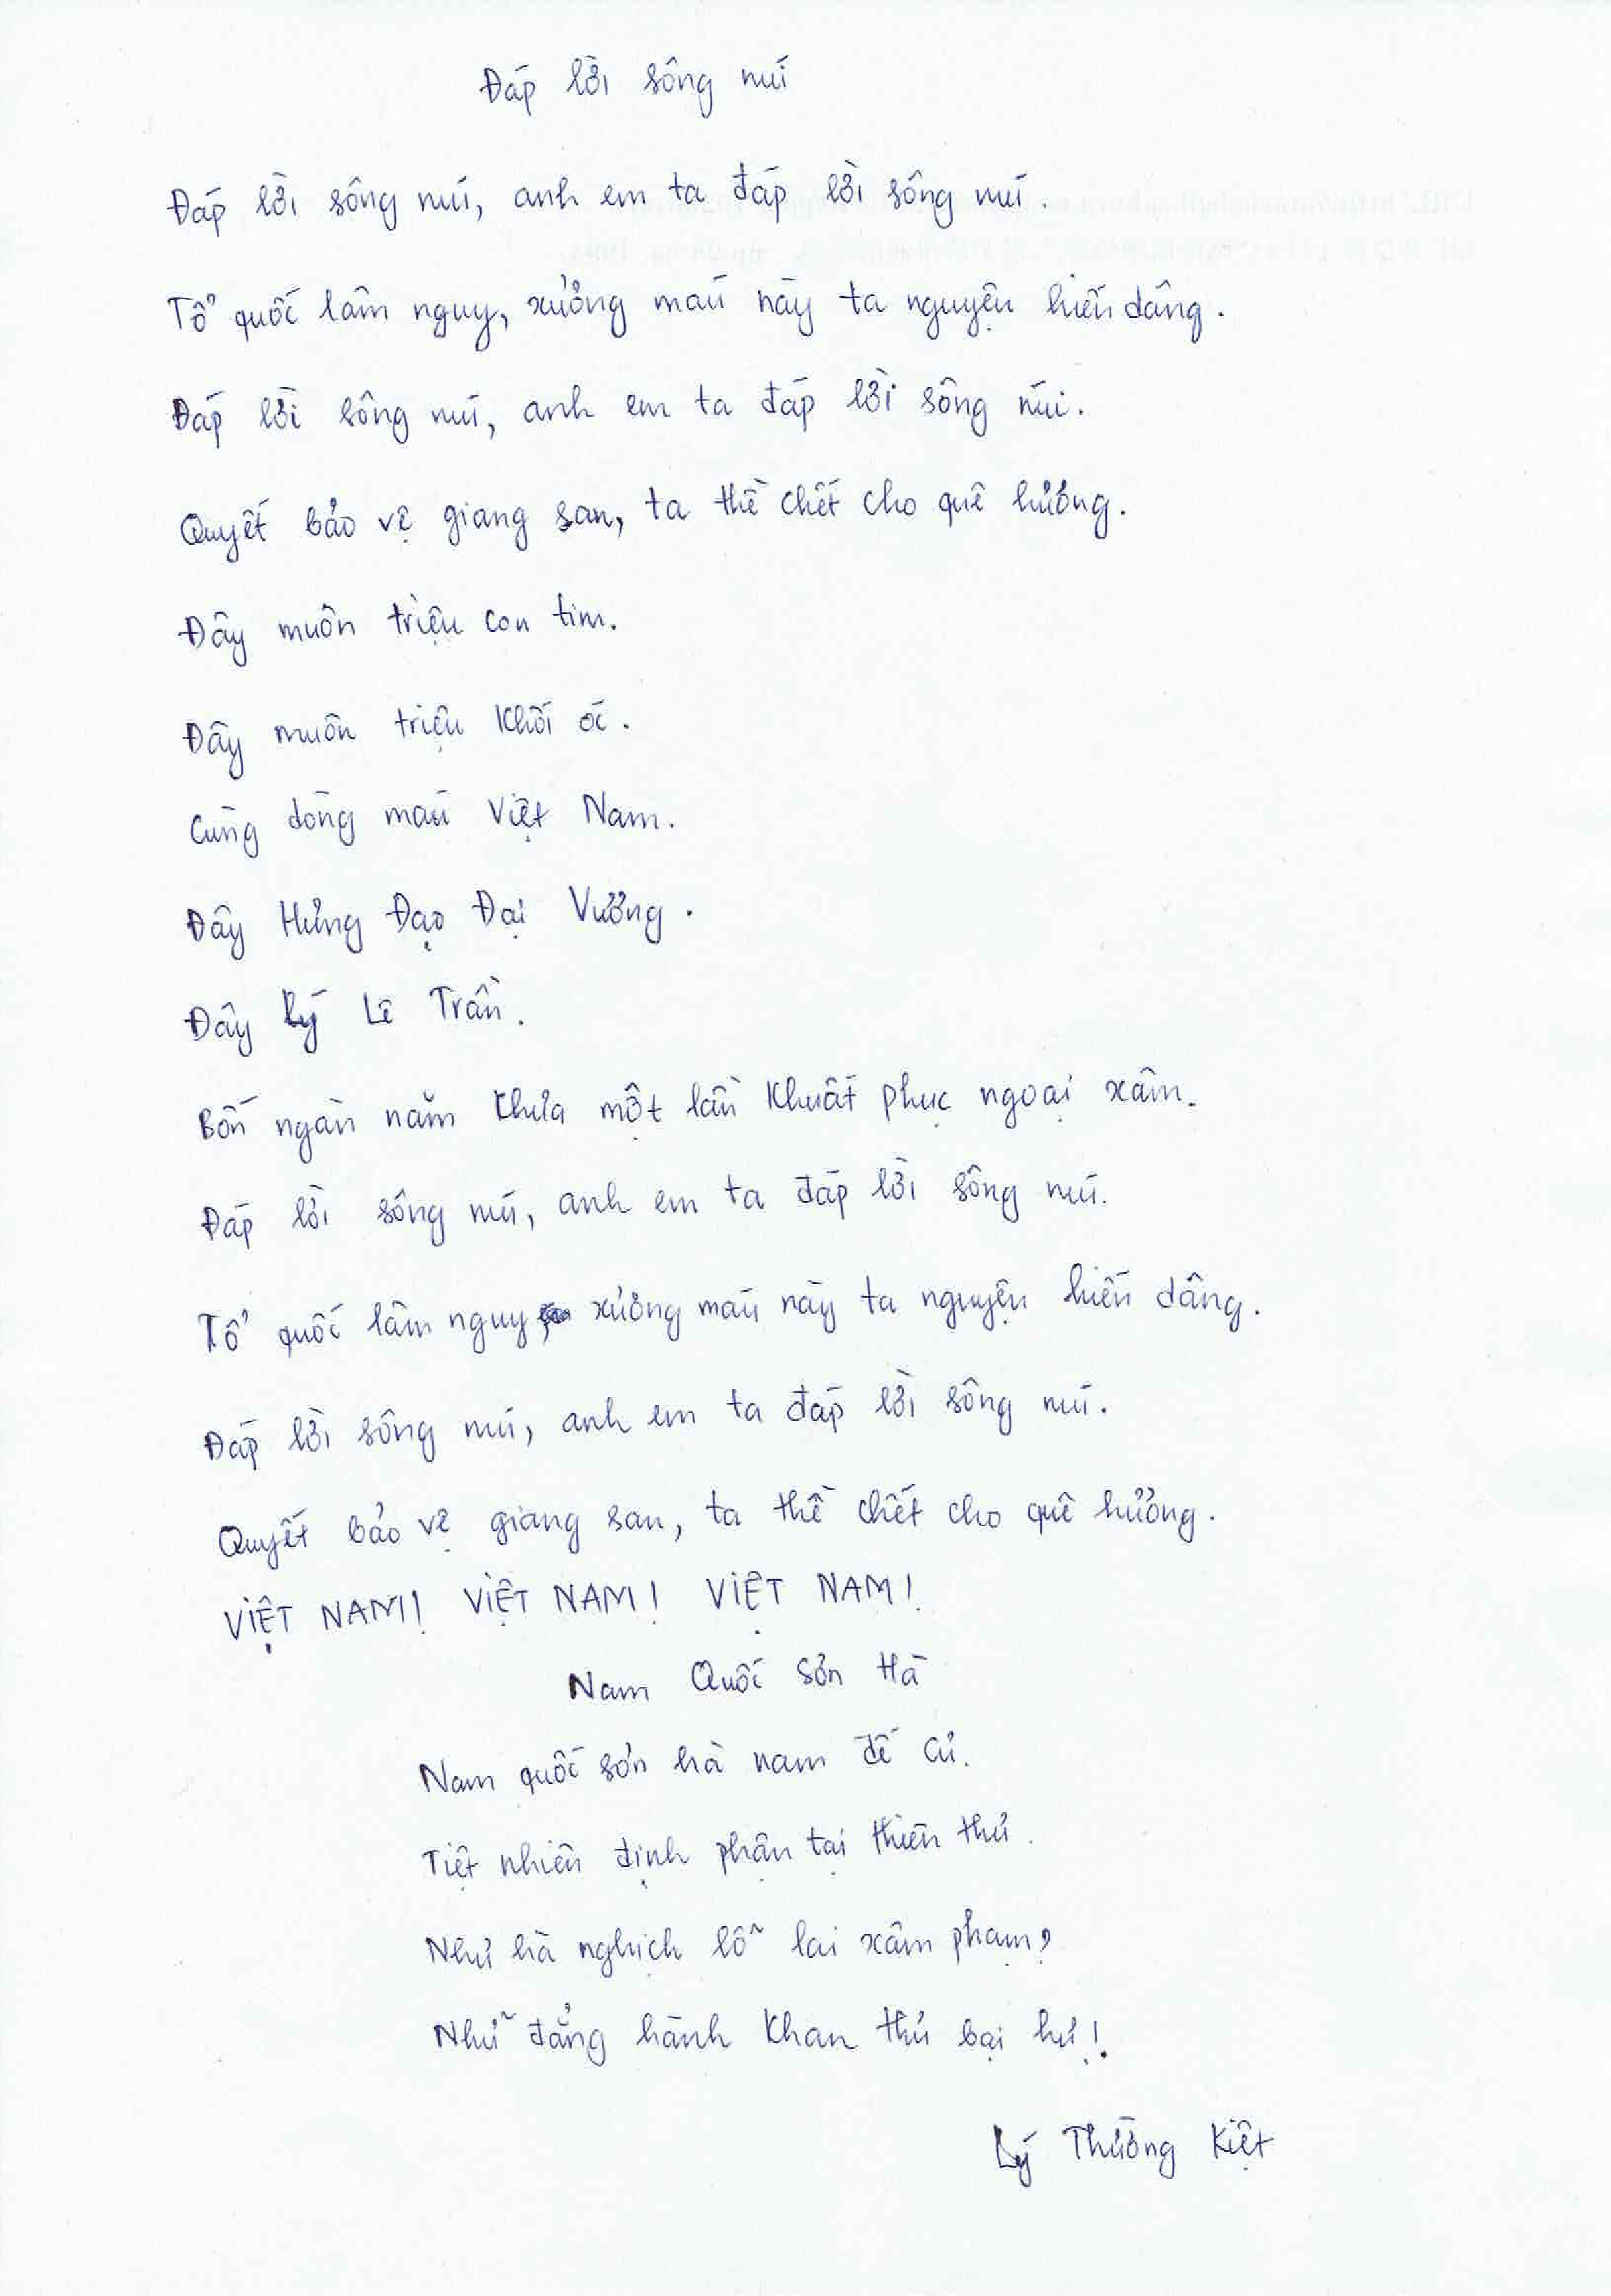 Đáp lời sông núi
Đáp lời sông núi, anh em ta đáp lời sông núi.
Tổ quốc lâm nguy, xương máu này ta nguyện hiến dâng.
Đáp lời sông núi, anh em ta đáp lời sông núi.
Quyết bảo vệ giang san, ta thề chết cho quê hương.
Đây muôn triệu con tim.
Đây muôn triệu khối óc.
Cùng dòng máu Việt Nam.
Đây Hưng Đạo Đại Vương.
Đây Lý Lê Trần.
Bốn ngàn năm chưa một lần khuất phục ngoại xâm.
Đáp lời sông núi, anh em ta đáp lời sông núi.
Tổ quốc lâm nguy xương máu này ta nguyện hiến dâng.
Đáp lời sông núi, anh em ta đáp lời sông núi.
Quyết bảo vệ giang san, ta thề chết cho quê hương.
VIỆT NAM! VIỆT NAM! VIỆT NAM!
Nam Quốc Sơn Hà
Nam quốc sơn hà nam đế cư.
Tiệt nhiên định phận tại thiên thư.
Như hà nghịch lỗ lai xâm phạm?
Nhữ đẳng hành khan thủ bại hư!
Lý Thường Kiệt